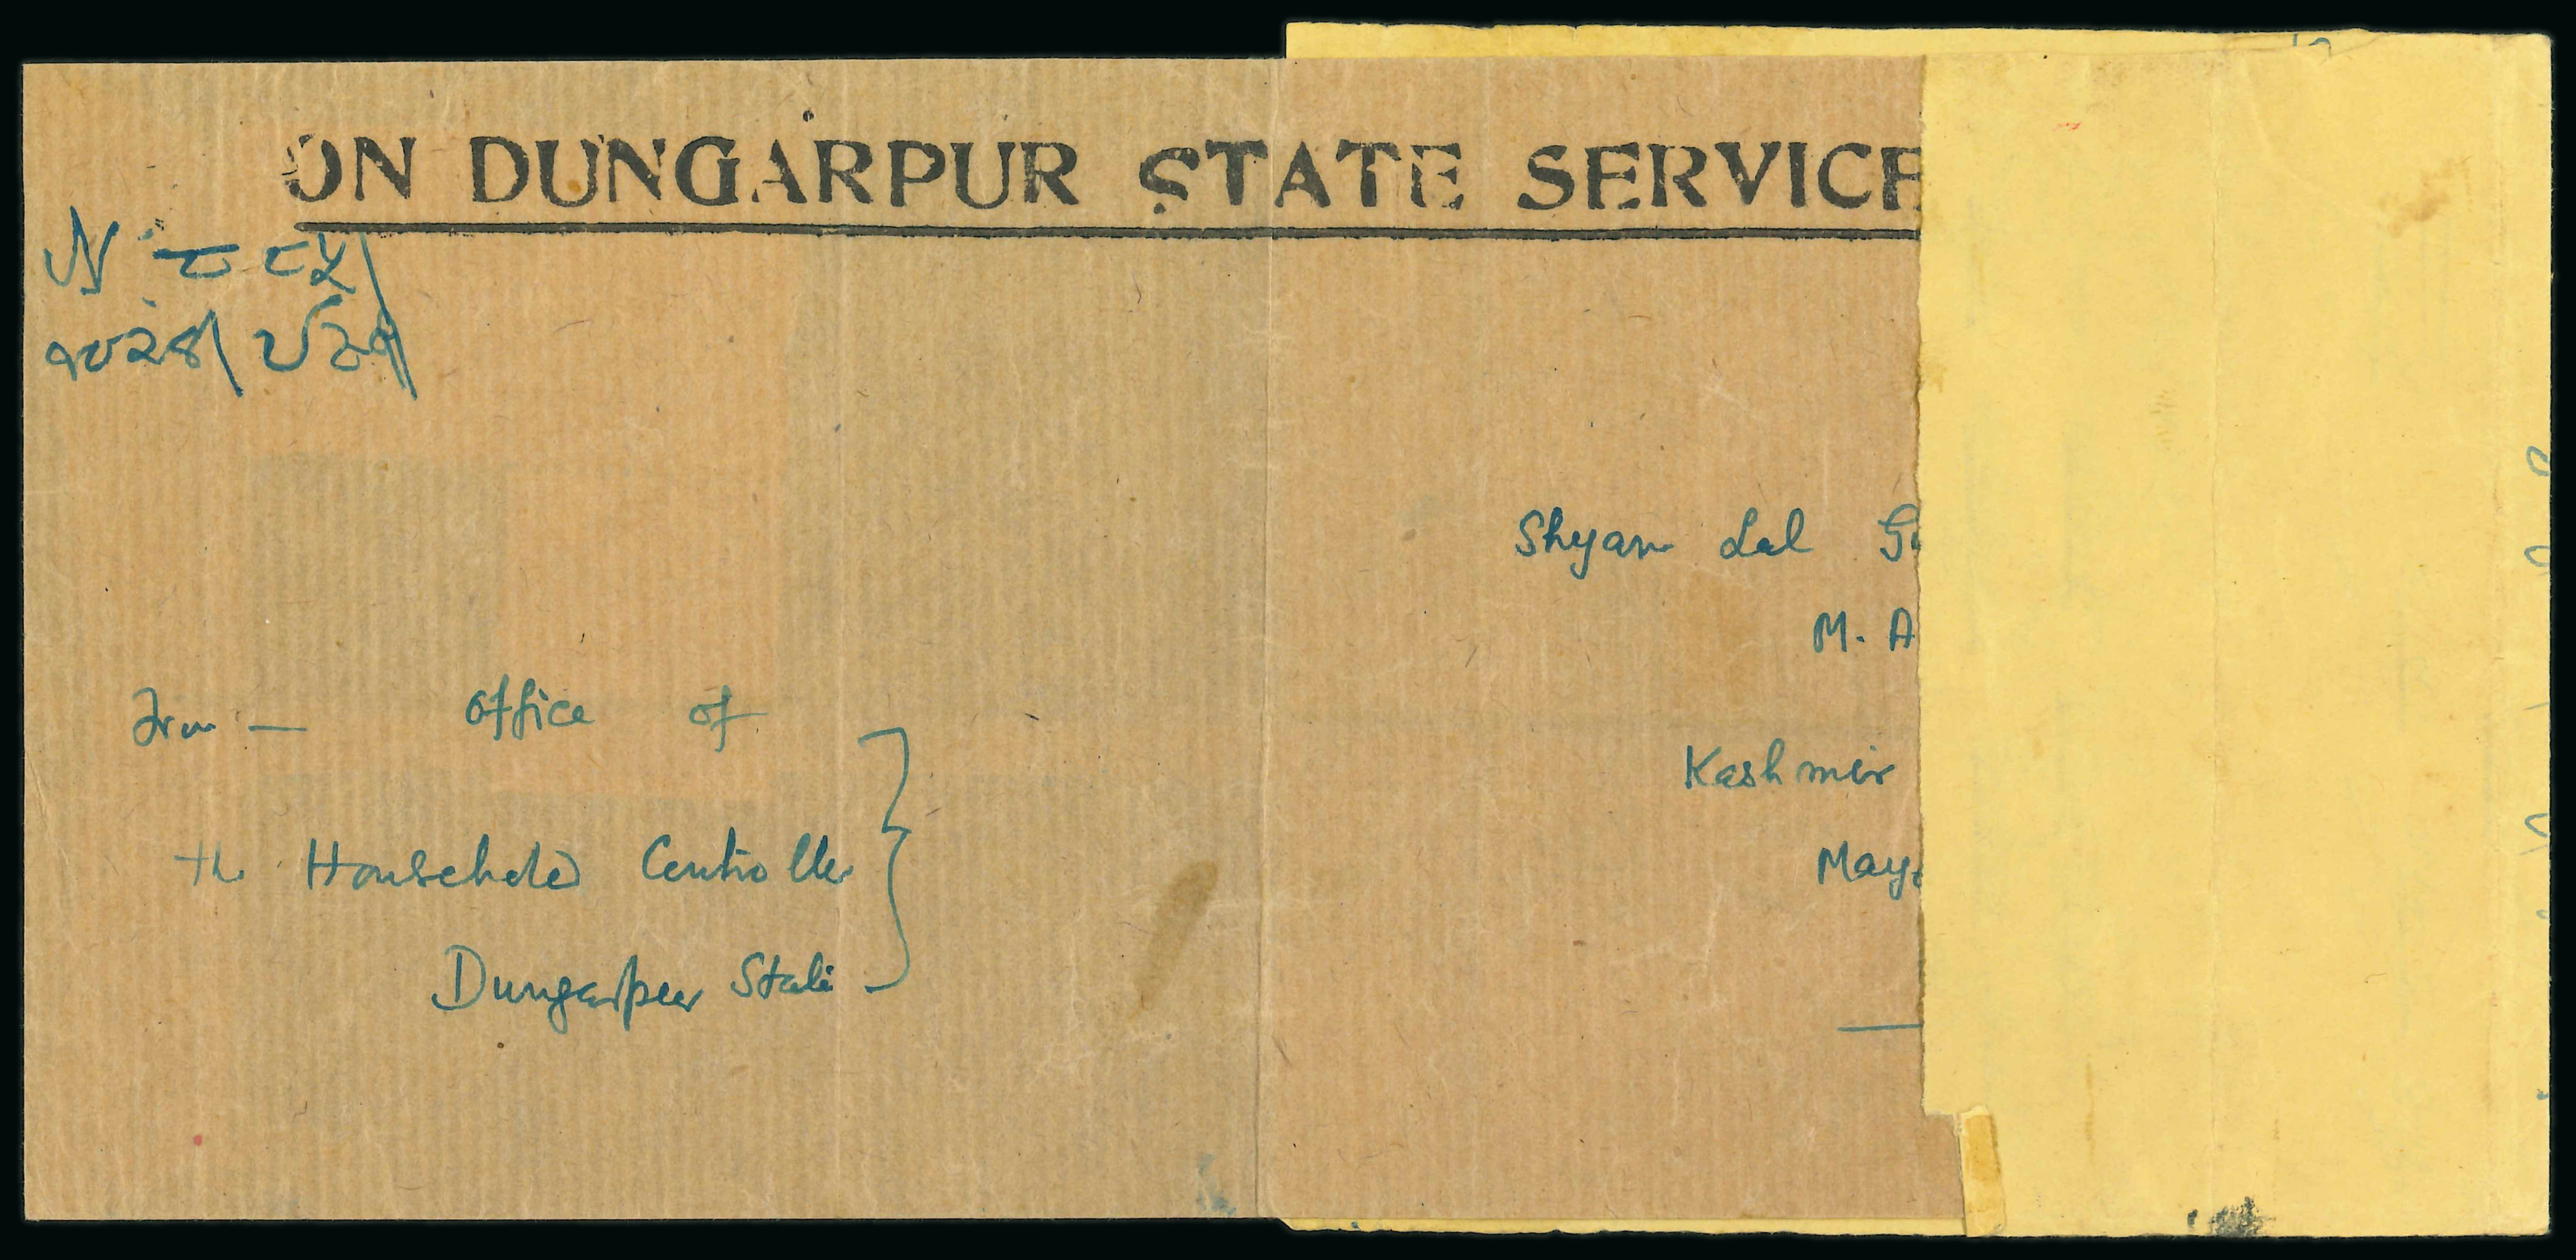 ON DUNGARPUR STATE SERVICE
N
Shyam Lal
M. A
Kashmir
From — Office of
the Household Controller
Dungarpur State